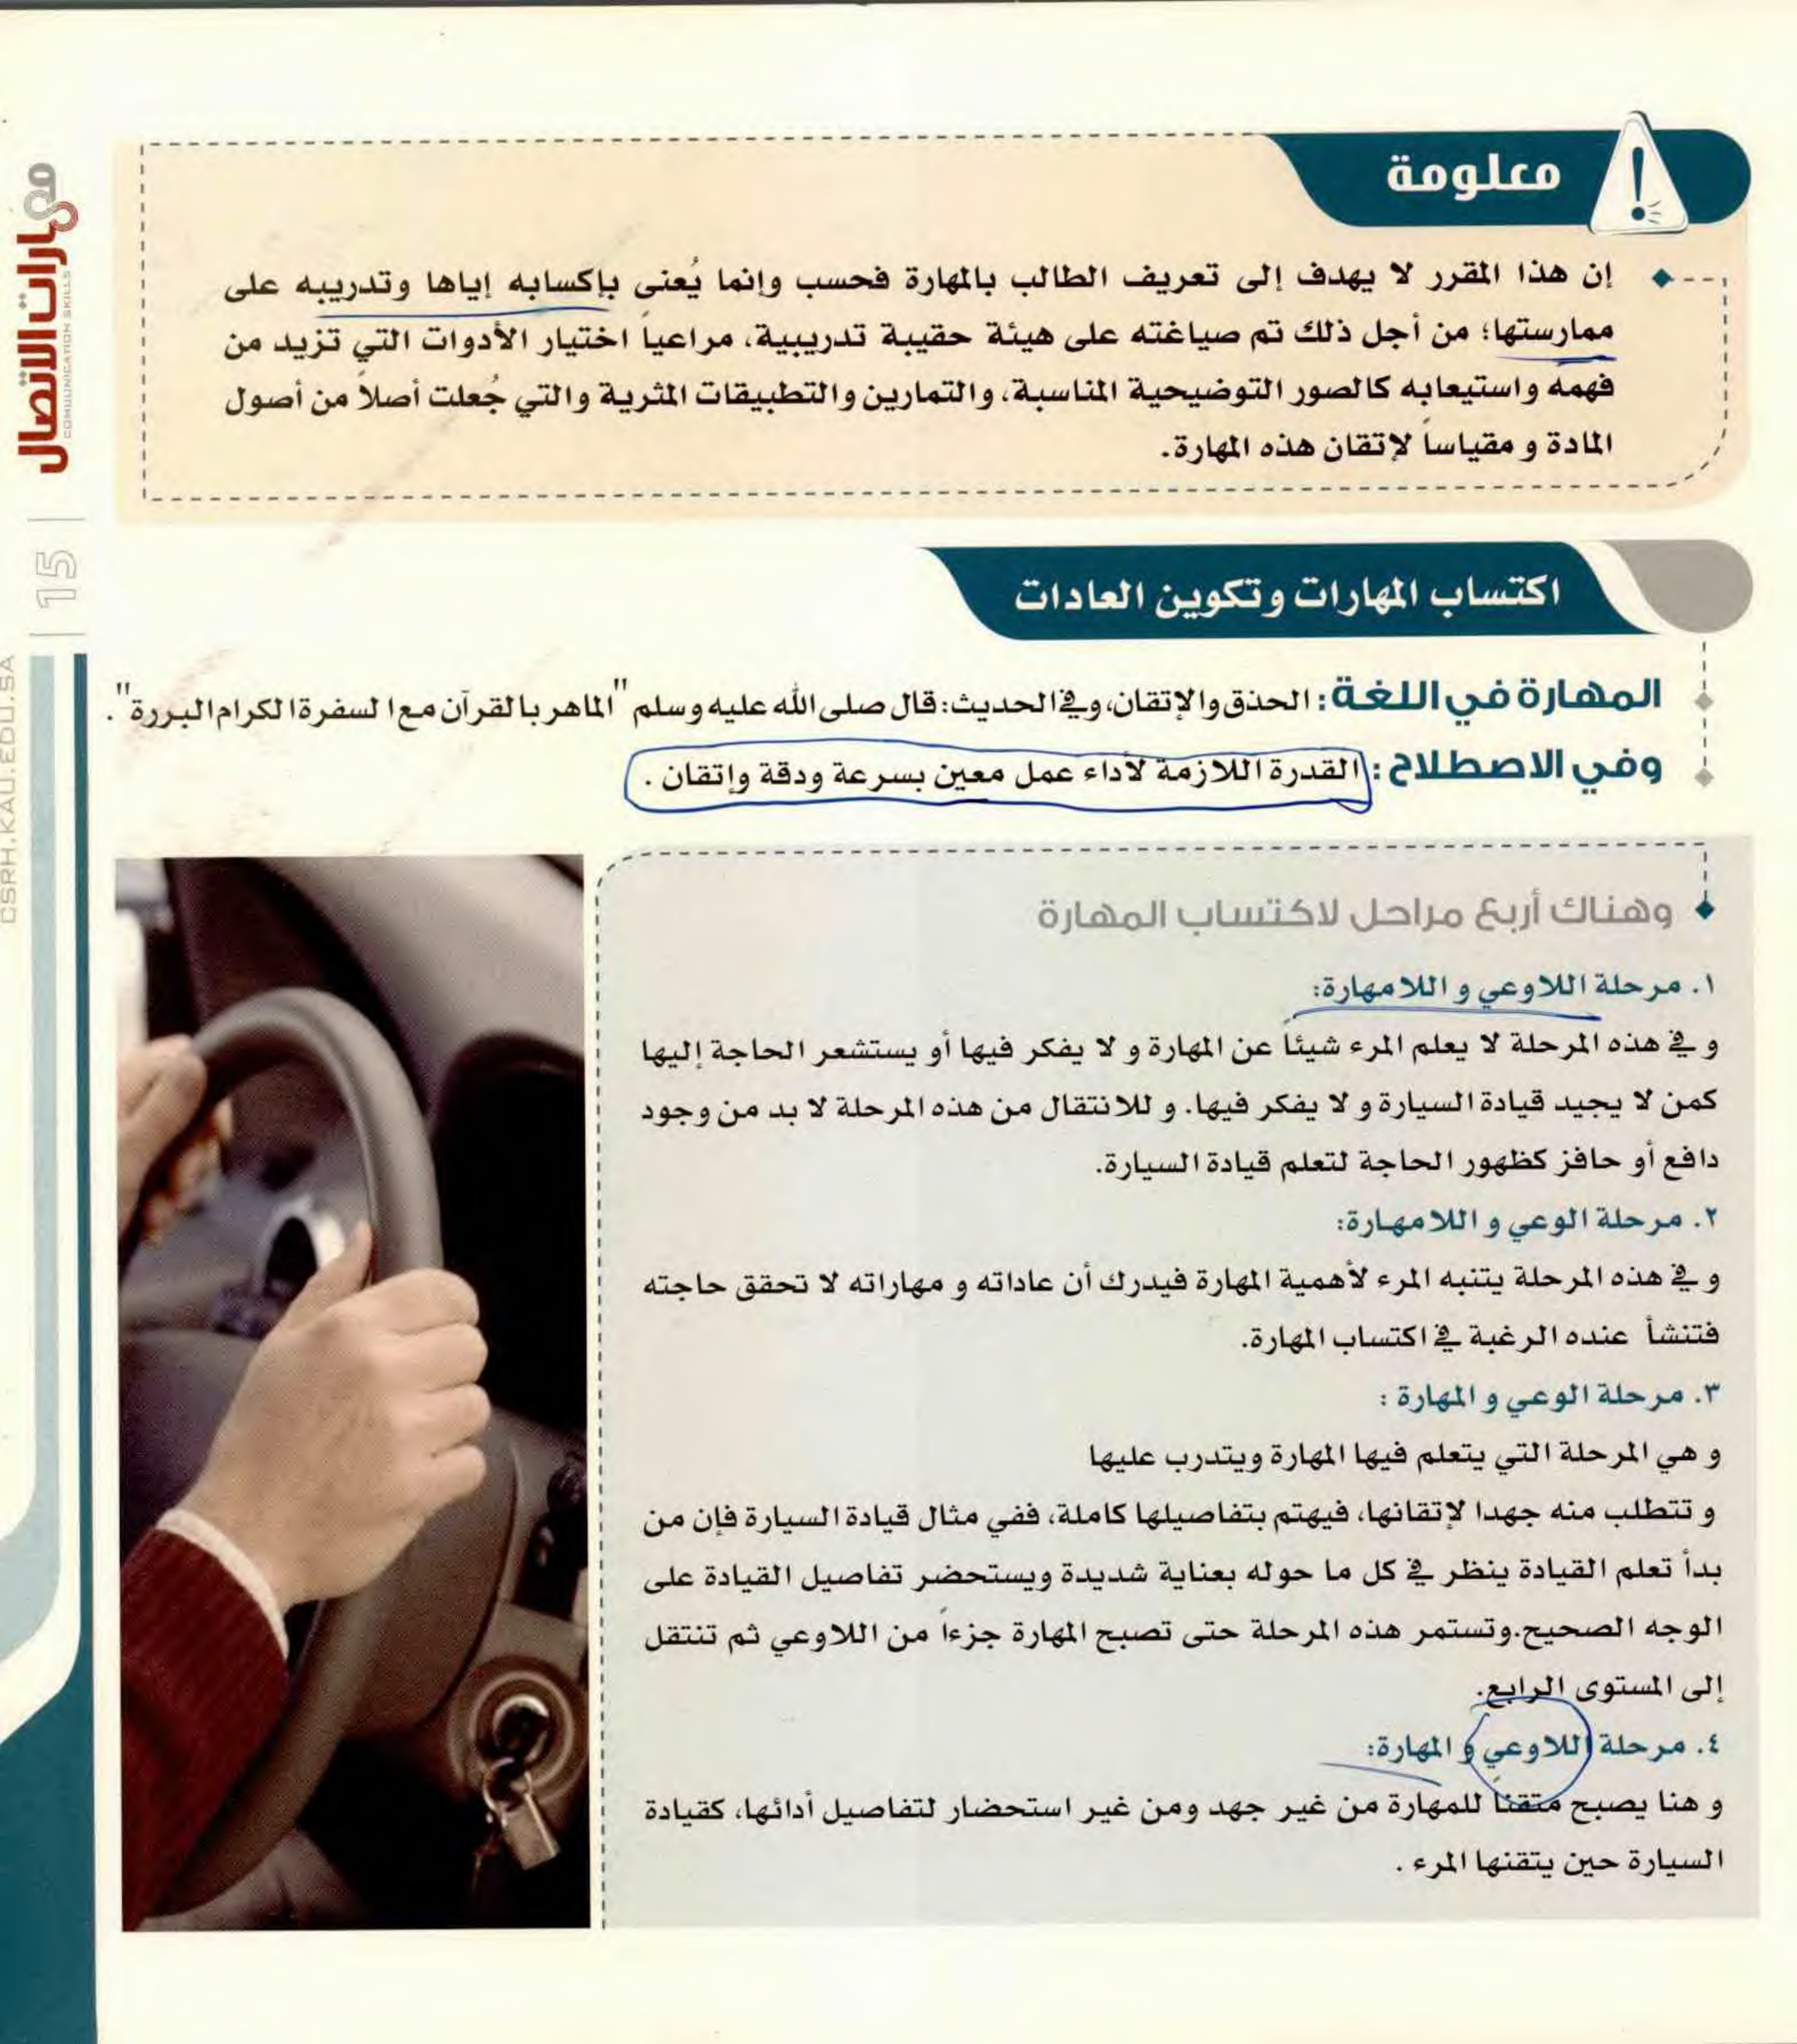 معلومة
إن هذا المقرر لا يهدف إلى تعريف الطالب بالمهارة فحسب وإنما يُعنى بإكسابه إياها وتدريبه على
ممارستها؛ من أجل ذلك تم صياغته على هيئة حقيبة تدريبية، مراعياً اختيار الأدوات التي تزيد من
فهمه واستيعابه كالصور التوضيحية المناسبة، والتمارين والتطبيقات المثرية والتي جُعلت أصلاً من أصول
المادة و مقياساً لإتقان هذه المهارة.
اكتساب المهارات وتكوين العادات
المهارة في اللغة: الحذق والإتقان، وفي الحديث: قال صلى الله عليه وسلم "الماهر بالقرآن مع السفرة الكرام البررة".
وفي الاصطلاح: القدرة اللازمة لأداء عمل معين بسرعة ودقة وإتقان .
وهناك أربع مراحل لاكتساب المهارة
١. مرحلة اللاوعي و اللامهارة:
و في هذه المرحلة لا يعلم المرء شيئاً عن المهارة و لا يفكر فيها أو يستشعر الحاجة إليها
كمن لا يجيد قيادة السيارة و لا يفكر فيها. و للانتقال من هذه المرحلة لا بد من وجود
دافع أو حافز كظهور الحاجة لتعلم قيادة السيارة.
٢. مرحلة الوعي و اللامهارة:
و في هذه المرحلة يتنبه المرء لأهمية المهارة فيدرك أن عاداته و مهاراته لا تحقق حاجته
فتنشأ عنده الرغبة في اكتساب المهارة.
٣. مرحلة الوعي و المهارة :
و هي المرحلة التي يتعلم فيها المهارة ويتدرب عليها
و تتطلب منه جهدا لإتقانها، فيهتم بتفاصيلها كاملة، ففي مثال قيادة السيارة فإن من
بدأ تعلم القيادة ينظر في كل ما حوله بعناية شديدة ويستحضر تفاصيل القيادة على
الوجه الصحيح.وتستمر هذه المرحلة حتى تصبح المهارة جزءاً من اللاوعي ثم تنتقل
إلى المستوى الرابع.
٤. مرحلة اللاوعي و المهارة:
و هنا يصبح متقناً للمهارة من غير جهد ومن غير استحضار لتفاصيل أدائها، كقيادة
السيارة حين يتقنها المرء .
مهارات الاتصال
COMMUNICATION SKILLS
15
CSRH.KAU.EDU.SA